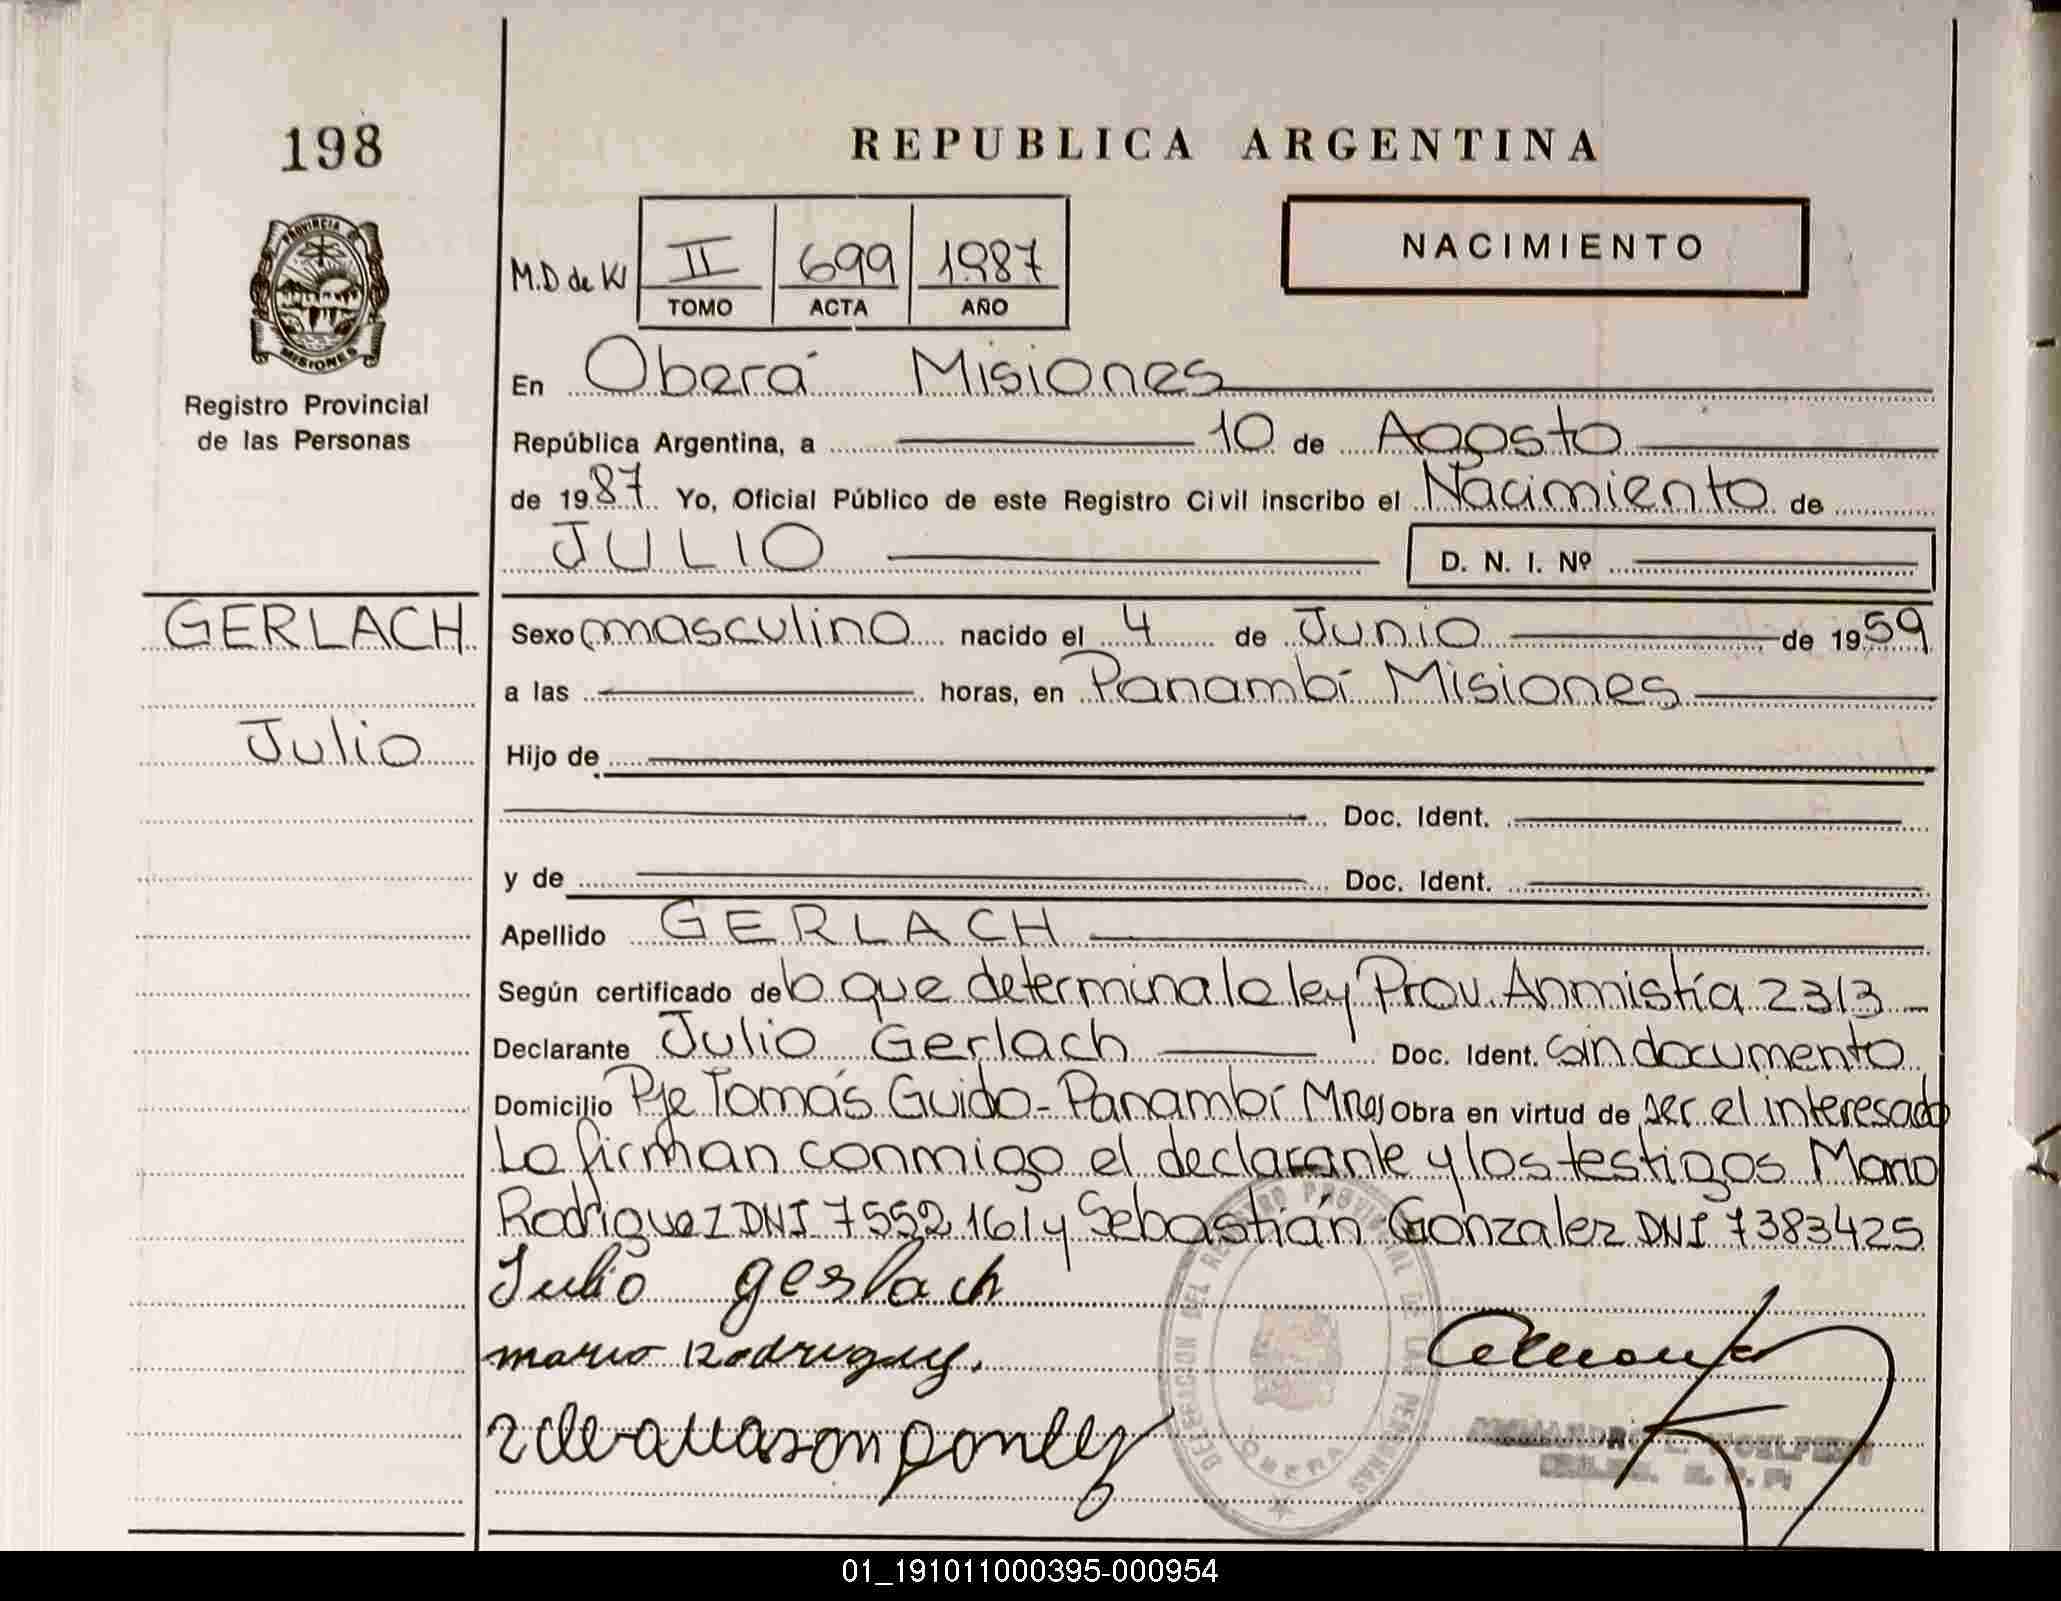 198
REPUBLICA ARGENTINA
PROVINCIA DE
MISIONES
Registro Provincial
de las Personas
M.D de
II 699 1987
TOMO ACTA AÑO
NACIMIENTO
En Oberá Misiones
República Argentina, a 10 de Agosto
de 1987 Yo, Oficial Público de este Registro Civil inscribo el Nacimiento de
JULIO D. N. I. Nº
GERLACH
Julio
Sexo masculino nacido el 4 de Junio de 1959
a las horas, en Panambí Misiones
Hijo de
Doc. Ident.
y de Doc. Ident.
Apellido GERLACH
Según certificado de lo que determina la ley Prov. Anmistía 2313
Declarante Julio Gerlach Doc. Ident. Sin documento
Domicilio Pje Tomás Guido - Panambí Mnes Obra en virtud de ser el interesado
Lo firman conmigo el declarante y los testigos Mario
Rodriguez DNI 7552161 y Sebastián Gonzalez DNI 7383425
Julio gerlach
mario Rodriguez.
DELEGACION DEL REGISTRO PROVINCIAL DE LAS PERSONAS
OBERA
01_191011000395-000954